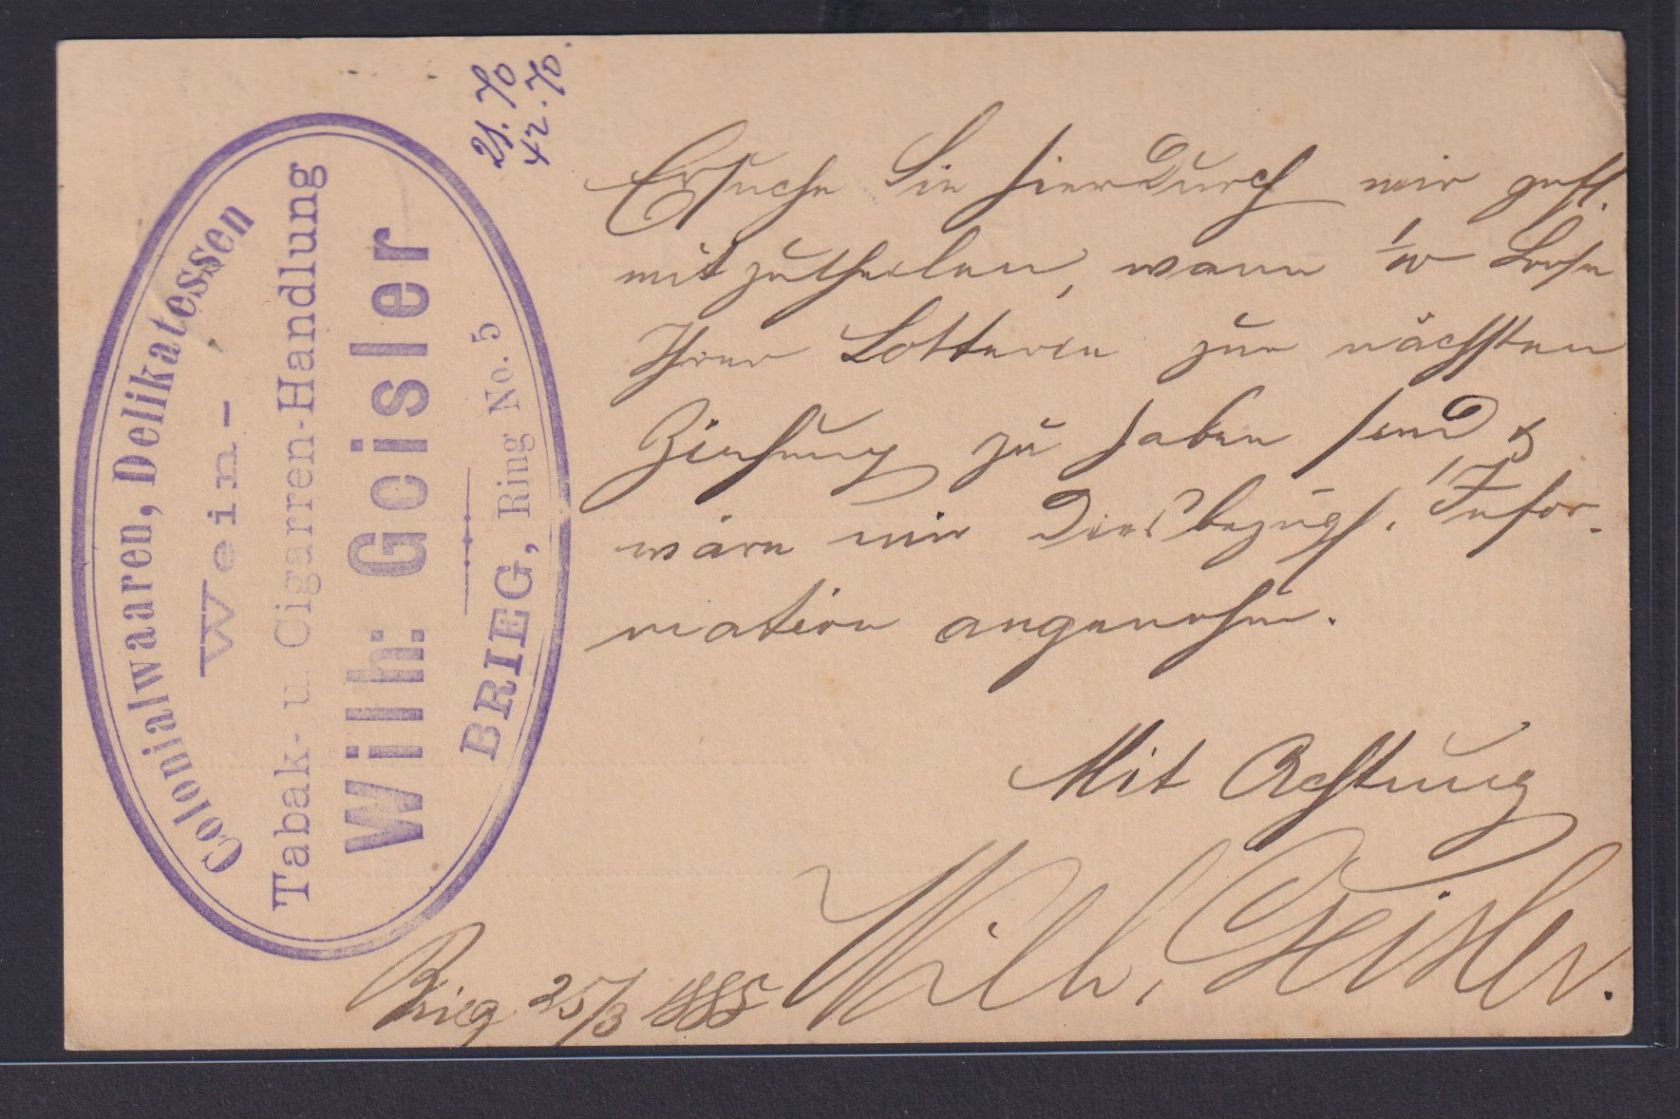 Colonialwaaren, Delikatessen
Wein-
Tabak- u. Cigarren-Handlung
Wilh: Geisler
BRIEG, Ring No. 5
21.70
42.70.
Ersuche Sie hierdurch mir gefl.
mitzutheilen, wann 1/10 Loose
Ihrer Lotterie zur nächsten
Ziehung zu haben sind &
wäre mir diesbezügl. Infor-
mation angenehm.
Mit Achtung
Wilh. Geisler.
Brieg 25/3 1885